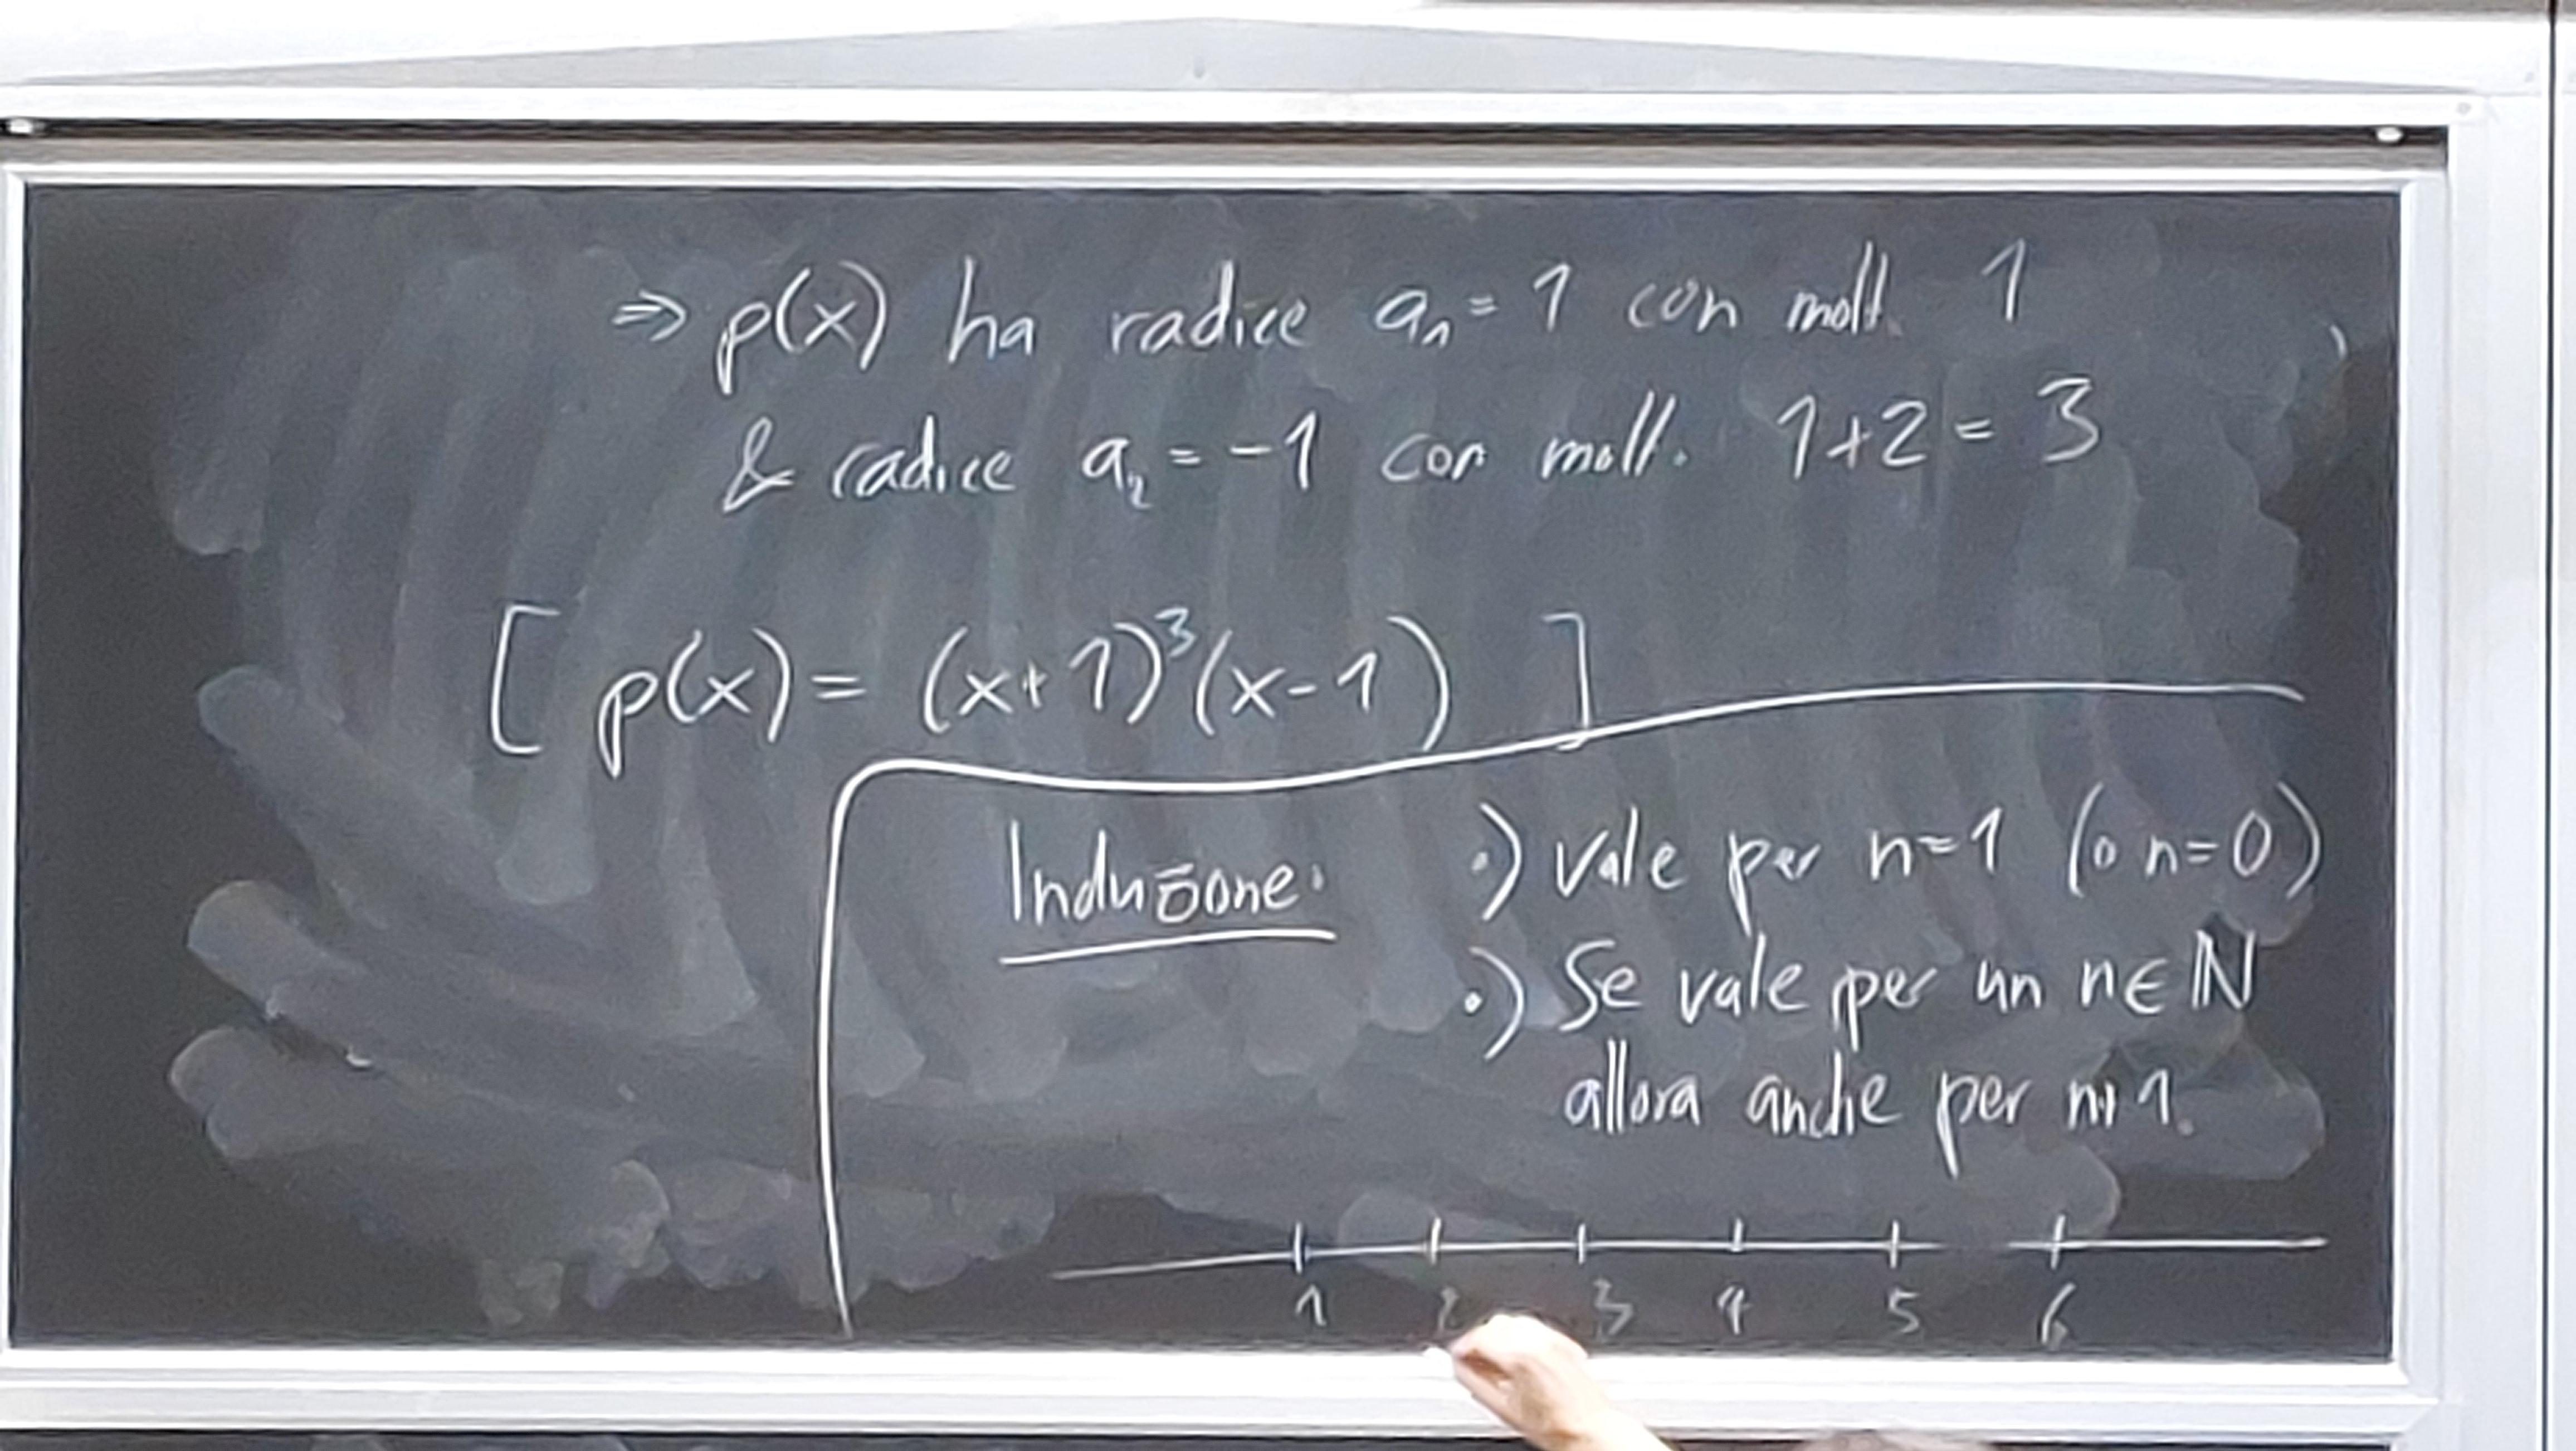 ⇒ p(x) ha radice a₁ = 1 con molt. 1
& radice a₂ = -1 con molt. 1+2 = 3
[ p(x) = (x+1)³(x-1) ]
Induzione:
•) vale per n=1 (o n=0)
•) Se vale per un n∈ℕ
allora anche per n+1.
1 2 3 4 5 6